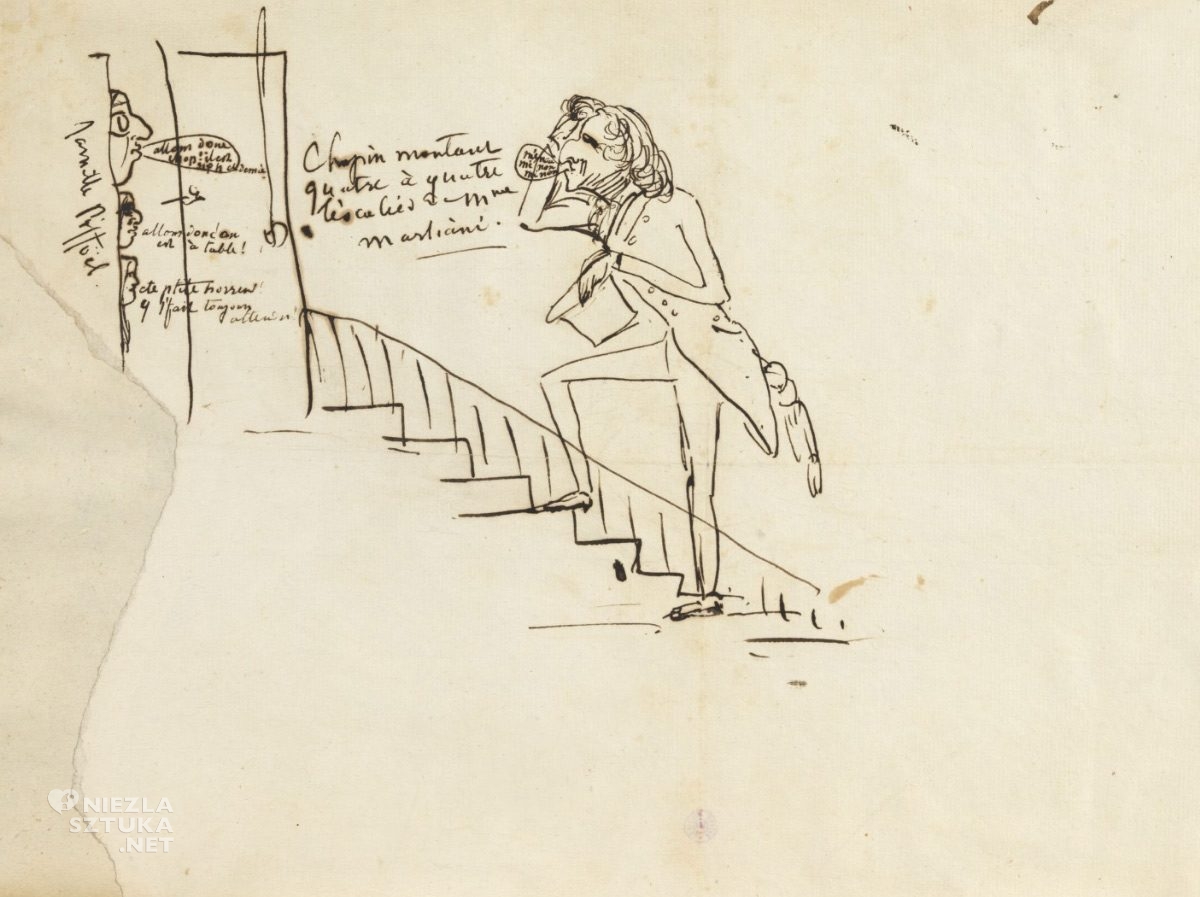 famille Piffoël
allons donc
chop! il est
six h. et demie
allons donc on
est à table!
c'te p'tite horreur!
y s'fait toujours
attendre!
Chopin montant
quatre à quatre
l'éscalier d Mme
Marliani.
NIEZLA
SZTUKA
.NET